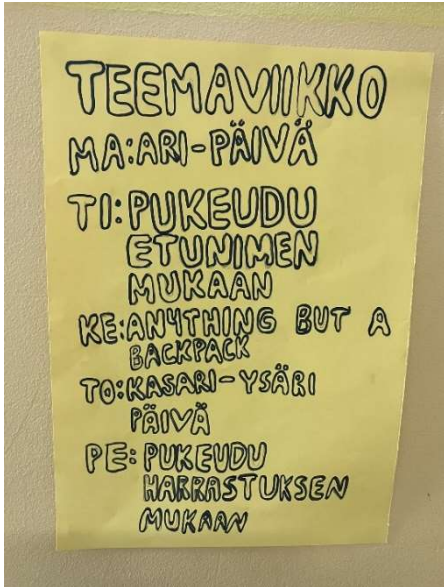 TEEMAVIIKKO
MA:ARI-PÄIVÄ
TI:PUKEUDU
ETUNIMEN
MUKAAN
KE:ANYTHING BUT A
BACKPACK
TO:KASARI-YSÄRI
PÄIVÄ
PE:PUKEUDU
HARRASTUKSEN
MUKAAN